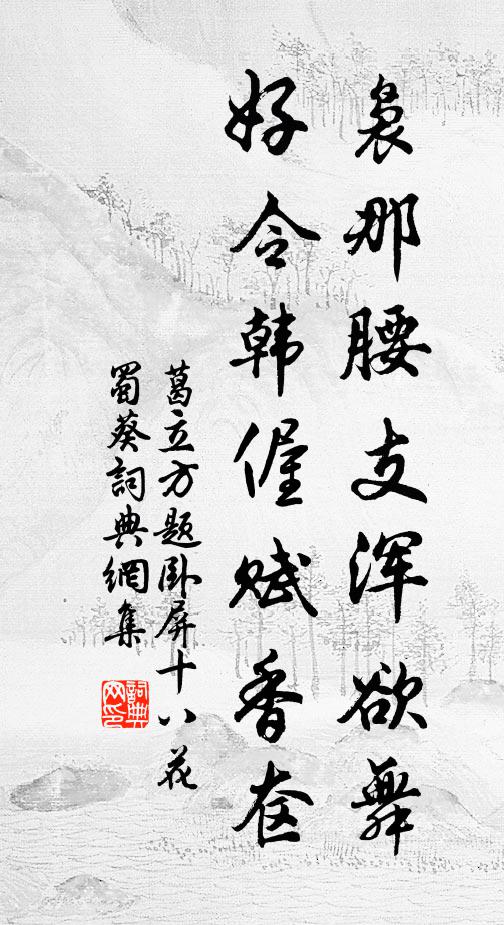 袅那腰支浑欲舞
好令韩偓赋香奁
葛立方题卧屏十八花
蜀葵詞典網集
詞典
网印